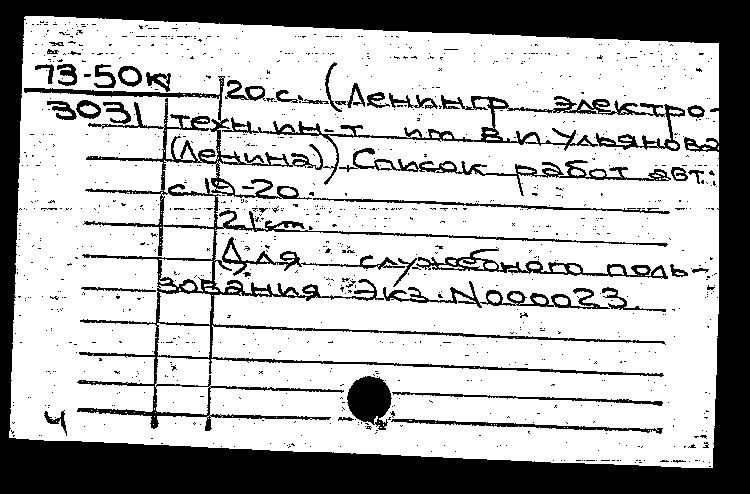 73-50к
3031
20 с. (Ленингр. электро-
техн. ин-т им. В.И.Ульянова
(Ленина)) Список работ авт.:
с. 19-20.
21 см.
Для служебного поль-
зования Экз. N000023.
Ч